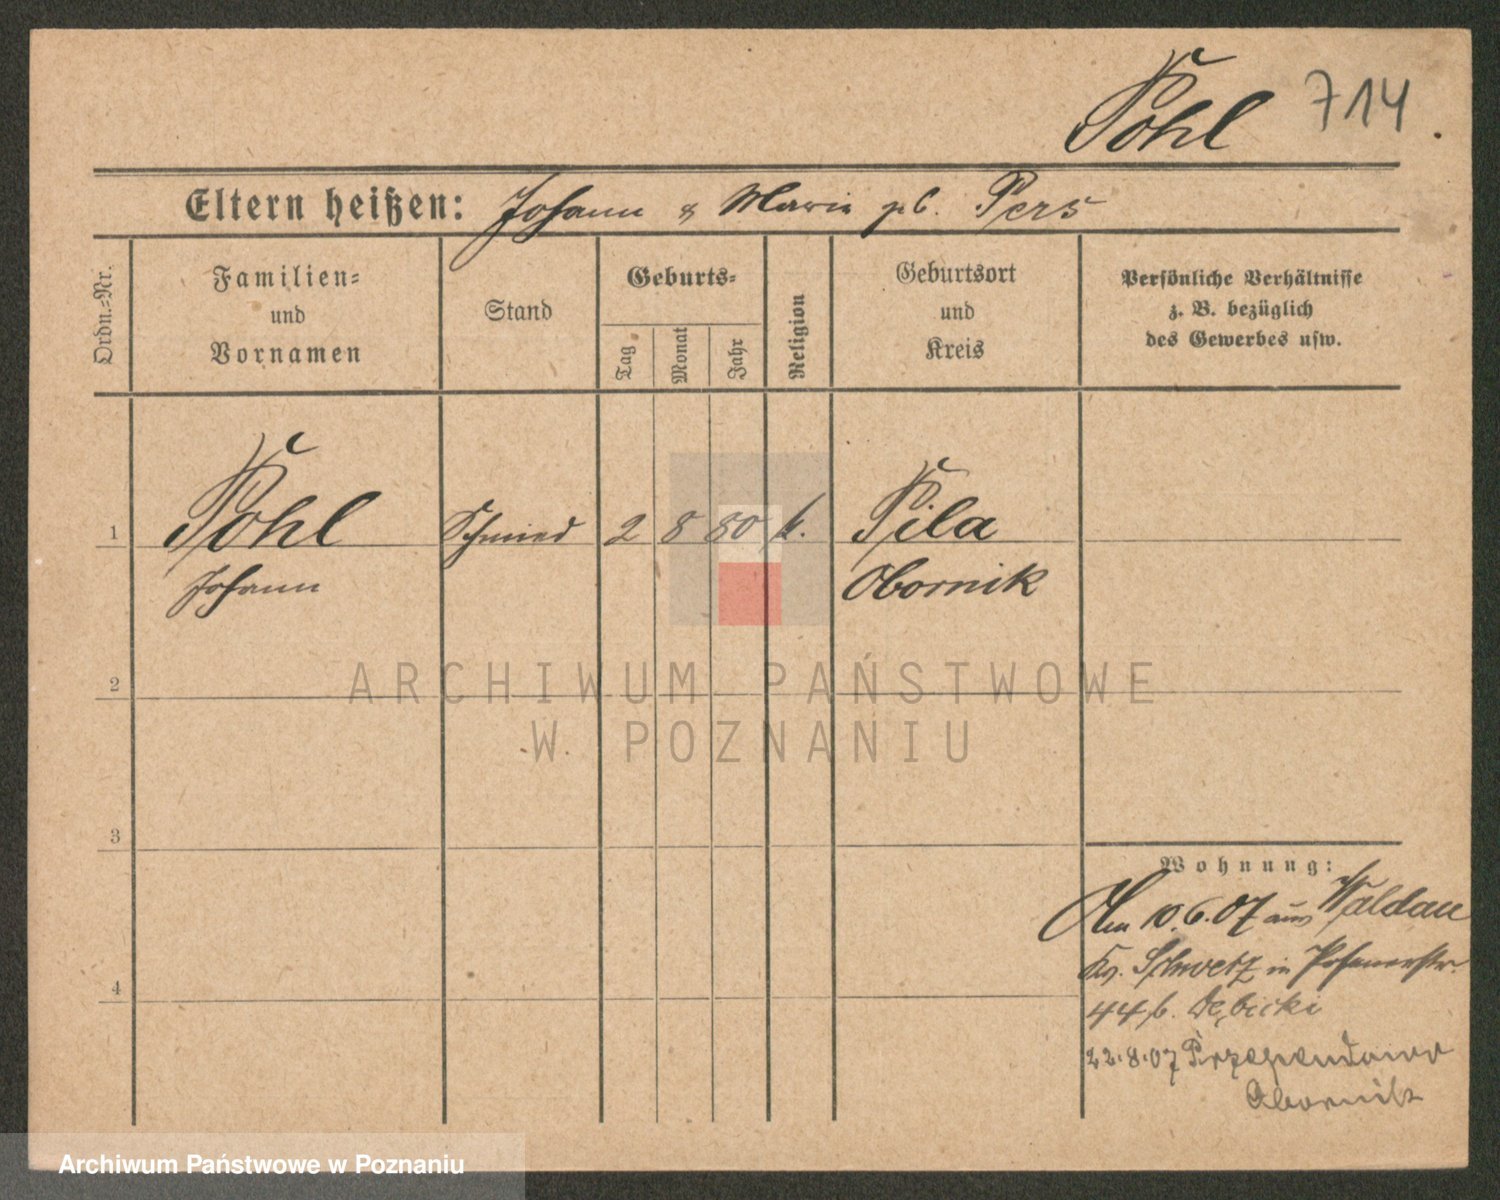 Pohl 714
Eltern heißen: Johann & Marie gb. Pers
Ordn.=Nr.
Familien=
und
Vornamen
Stand
Geburts=
Tag
Monat
Jahr
Religion
Geburtsort
und
Kreis
Persönliche Verhältnisse
z. B. bezüglich
des Gewerbes usw.
1 Pohl Schmied 2 8 80 k. Pila
Johann Obornik
2
ARCHIWUM PAŃSTWOWE
W POZNANIU
3
Wohnung:
Am 10.6.07 aus Waldau
Kr. Schwetz in Posenerstr.
4
44 b. Dębicki
22.8.07
Obornik
Archiwum Państwowe w Poznaniu